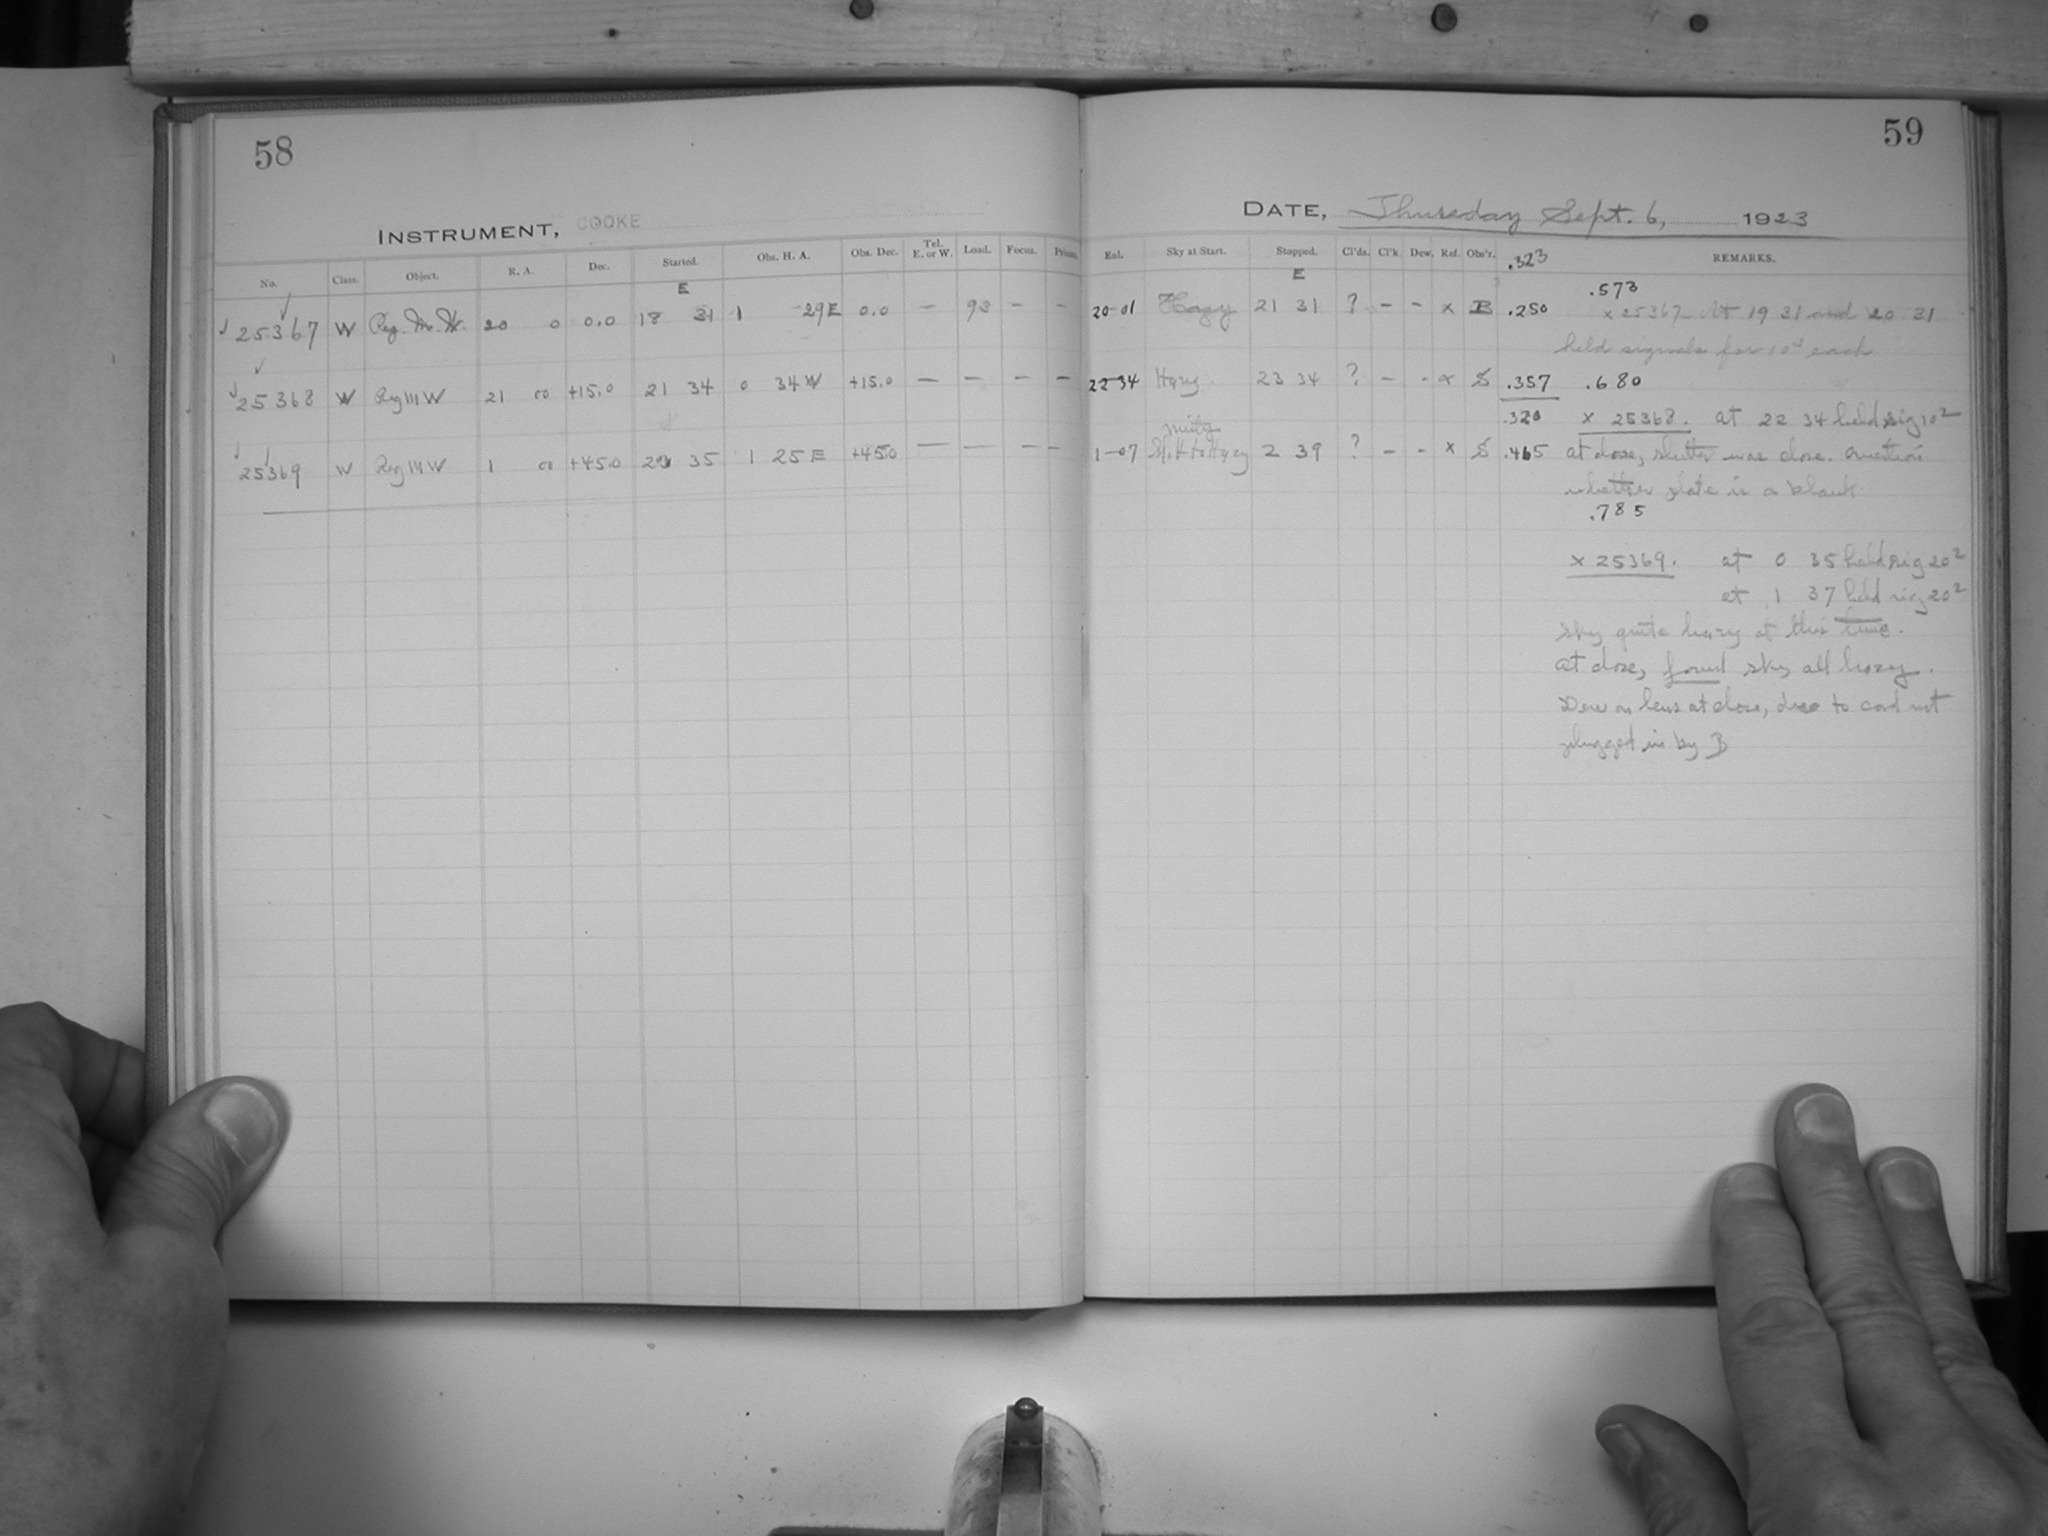 58
INSTRUMENT, COOKE
No. Class. Object. R. A. Dec. Started. Obs. H. A. Obs. Dec. Tel. E. or W. Load. Focus.
E
25367 W Reg. M. W. 20 0 0.0 18 31 1 29E 0.0 — 93 — —
25368 W Reg III W 21 00 +15.0 21 34 0 34 W +15.0 — — — —
25369 W Reg IV W 1 00 +45.0 35 1 25 E +45.0 — — — —
59
DATE, Thursday Sept. 6, 1923
Exl. Sky at Start. Stopped. Cl'ds. Cl'k. Dew. Ref. Obs'r. .323 REMARKS.
E
.573
20-01 Hazy 21 31 ? - - x B .250 x 25367 At 19 31 and 20 31
held signals for 10s each
22-34 Hazy. 23 34 ? - - x S .357 .680
.320 x 25368. at 22 34 held sig 10 2
1-07 to Hazy 2 39 ? - - x S .465 at close, shutter was close. Question
whether plate is a blank.
.785
x 25369. at 0 35 held sig 20 2
at 1 37 held sig 20 2
Sky quite hazy at this time.
at close, found sky all hazy.
Dew on lens at close, due to cord not
plugged in by B